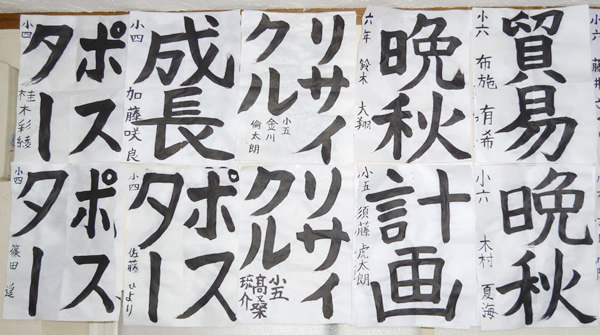 貿易
小六 布施 有希
晩秋
六年 鈴木 大翔
リサイ
クル
小五 金川 倫太朗
成長
小四 加藤咲良
ポス
ター
小四 桂木彩綾
晩秋
小六 木村 夏海
計画
小五 須藤 虎太朗
リサイ
クル
小五 高桑
ポス
ター
小四 佐藤 ひより
ポス
ター
小四 篠田 遥
小六 藤井